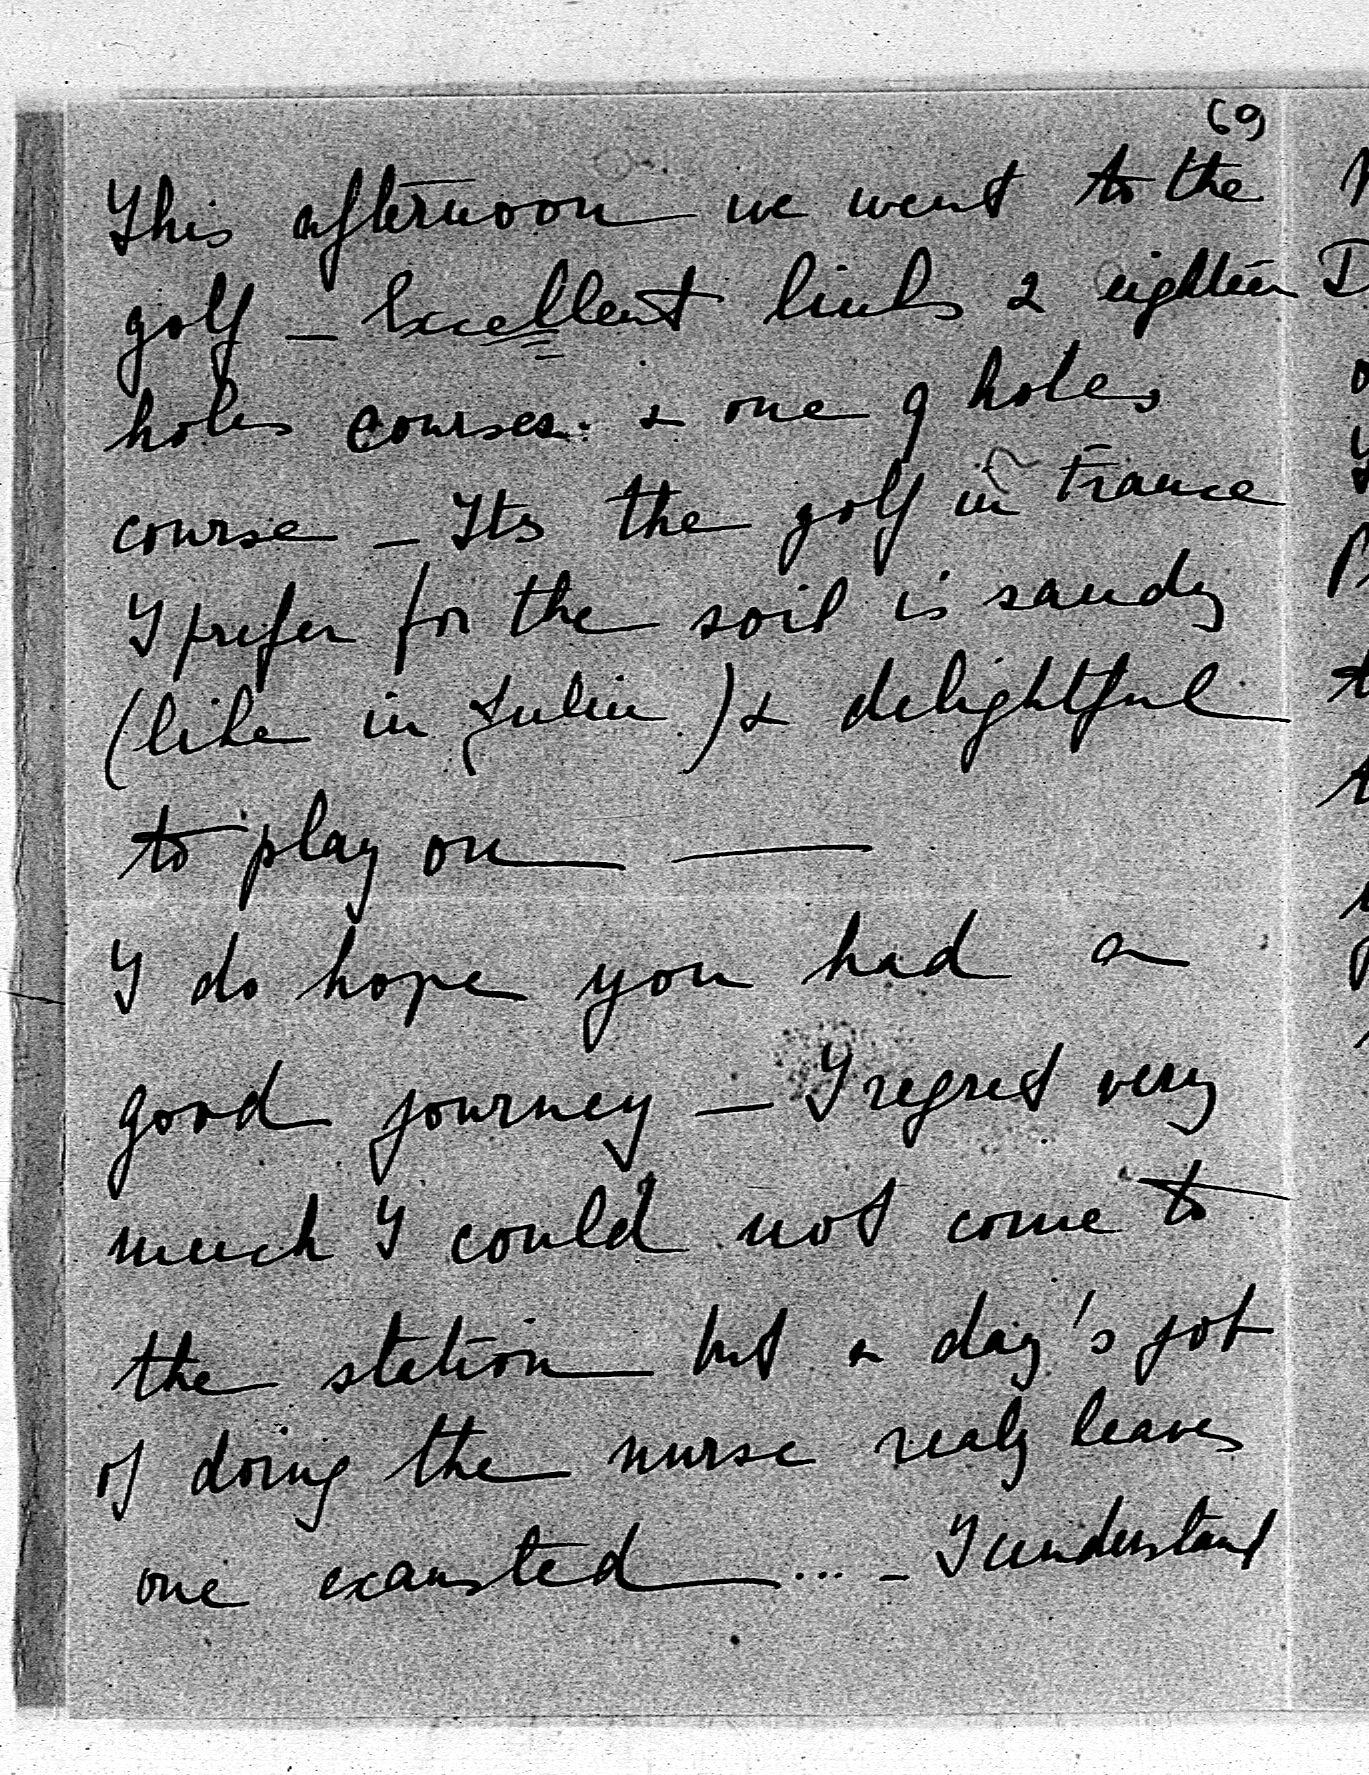 69
This afternoon we went to the
golf – Excellent links 2 eighteen
holes courses. & one 9 holes
course – Its the golf in France
I prefer for the soil is sandy
(like in ) & delightful
to play on ——
I do hope you had a
good journey – I regret very
much I could not come to
the station but a day's job
of doing the nurse realy leaves
one exausted ... – I understand